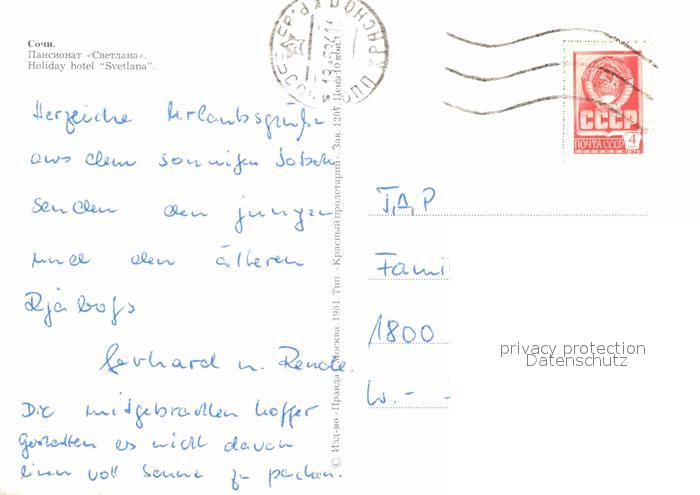 Сочи.
Пансионат «Светлана».
Holiday hotel "Svetlana".
СССР
ПОЧТА СССР
4
1976
Herzliche Urlaubsgrüße
aus dem sonnigen Sotschi
senden den jungen
und den älteren
Rjabofs
Gerhard u. Renate.
Die mitgebrachten Koffer
gestatten es nicht davon
einen voll Sonne zu packen.
© Изд-во «Правда». Москва. 1981. Тип. «Красный пролетарий». Зак. 1207. Цена
ГДР
Fami
1800
W.-
privacy protection
Datenschutz